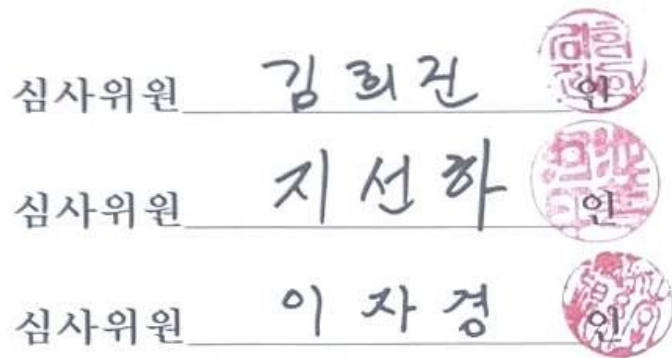 심사위원 김희진 인
심사위원 지선하 인
심사위원 이자경 인